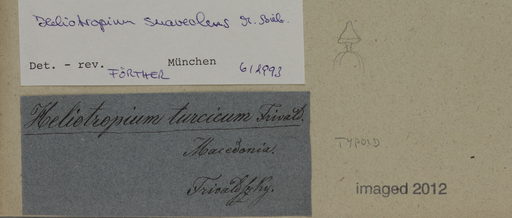 Heliotropium suaveolens M. Bieb.
Det. - rev. FÖRTHER München 6/1993
Heliotropium turcicum Frivald.
Macedonia.
Frivaldszky.
TYPOID
imaged 2012